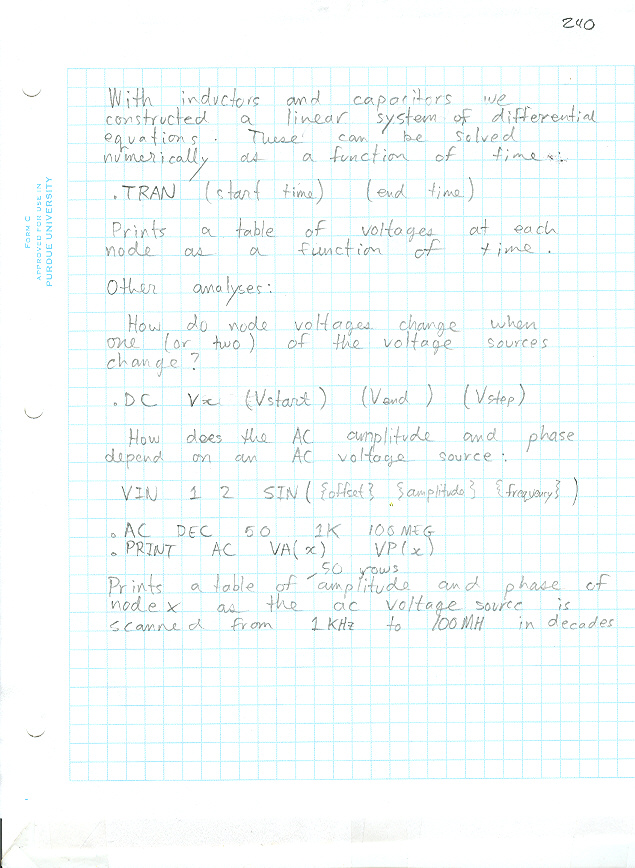 240
With inductors and capacitors we
constructed a linear system of differential
equations. These can be solved
numerically as a function of time:
.TRAN (start time) (end time)
Prints a table of voltages at each
node as a function of time.
Other analyses:
How do node voltages change when
one (or two) of the voltage sources
change?
.DC Vx (Vstart) (Vend) (Vstep)
How does the AC amplitude and phase
depend on an AC voltage source:
VIN 1 2 SIN({offset} {amplitude} {frequency})
.AC DEC 50 1K 100MEG
.PRINT AC VA(x) VP(x)
50 rows
Prints a table of amplitude and phase of
node x as the ac voltage source is
scanned from 1KHz to 100MH in decades
FORM C
APPROVED FOR USE IN
PURDUE UNIVERSITY